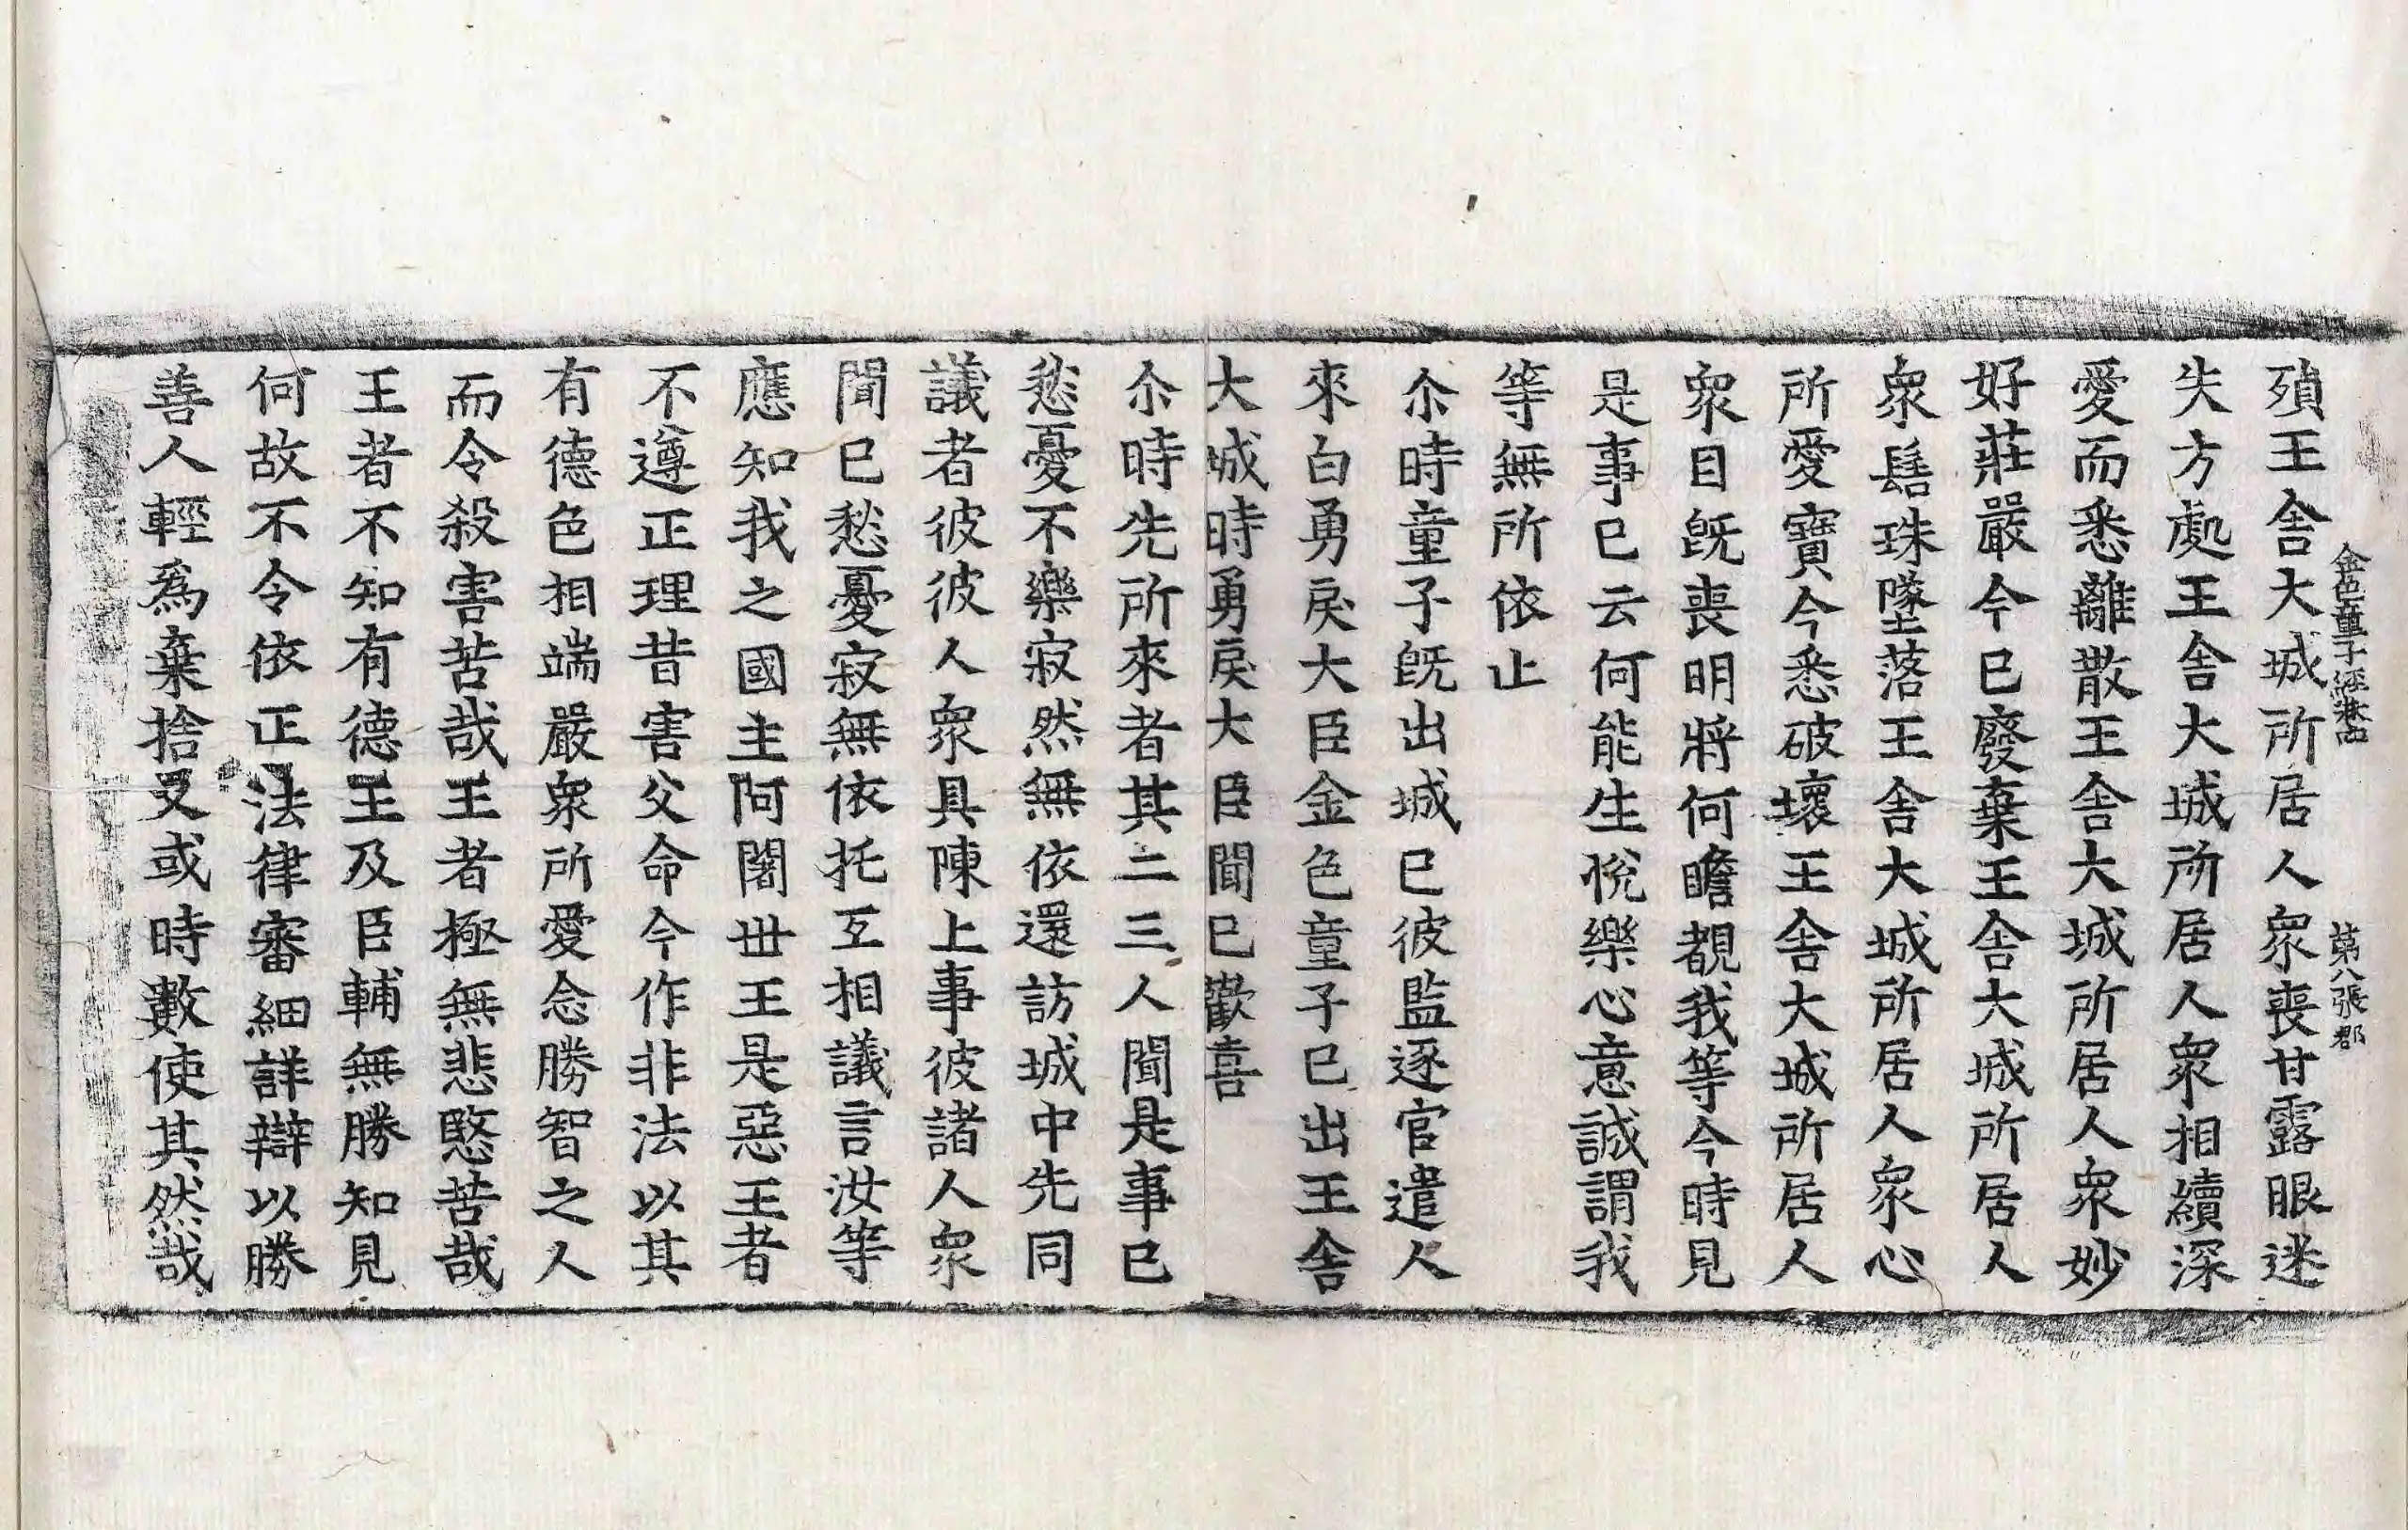 殞王舍大城所居人衆喪甘露眼迷
金色童子經卷四 第八張 郡
失方處王舍大城所居人衆相續深
愛而悉離散王舍大城所居人衆妙
好莊嚴今已廢棄王舍大城所居人
衆髻珠墜落王舍大城所居人衆心
所愛寶今悉破壞王舍大城所居人
衆目旣喪明將何瞻覩我等今時見
是事已云何能生悅樂心意誠謂我
等無所依止
尒時童子旣出城已彼監逐官遣人
來白勇戾大臣金色童子已出王舍
大城時勇戾大臣聞已歡喜
尒時先所來者其二三人聞是事已
愁憂不樂寂然無依還訪城中先同
議者彼彼人衆具陳上事彼諸人衆
聞已愁憂寂無依托互相議言汝等
應知我之國主阿闍世王是惡王者
不遵正理昔害父命今作非法以其
有德色相端嚴衆所愛念勝智之人
而令殺害苦哉王者極無悲愍苦哉
王者不知有德王及臣輔無勝知見
何故不令依正法律審細詳辯以勝
善人輕爲棄捨又或時數使其然哉